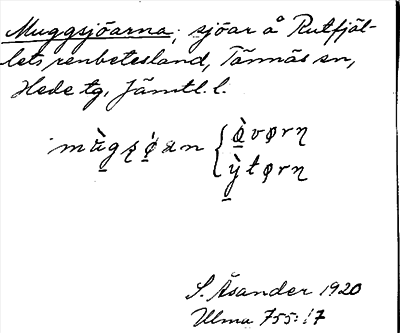 Muggsjöarna; sjöar å Rutfjäl-
lets renbetesland, Tännäs sn,
Hede tg, Jämtl. l.
ø̀vørɳ
ỳtørɳ
S. Åsander 1920
Ulma 755:17